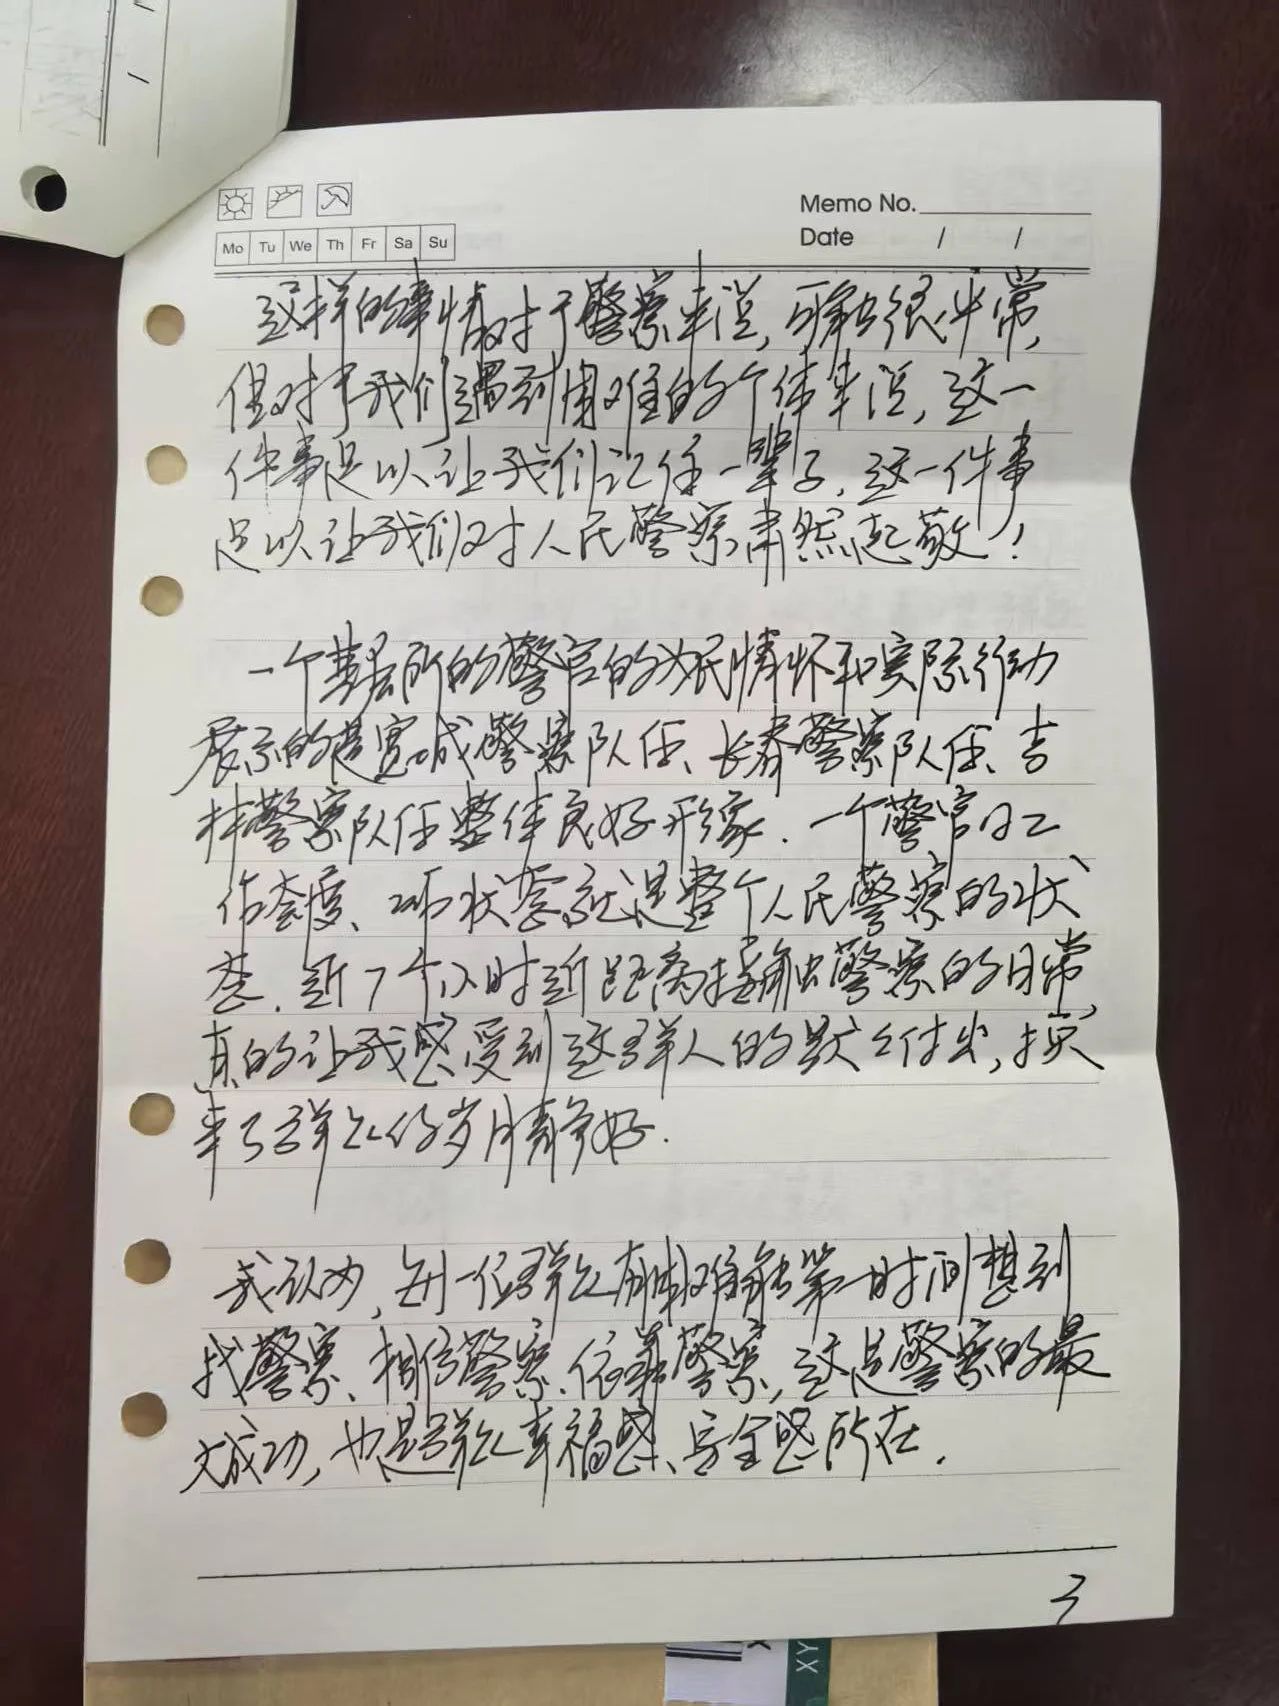 Memo No.
Mo Tu We Th Fr Sa Su
Date / /
这样的事情对于警察来说,可能很平常,
但对于我们遇到困难的个体来说,这一
件事足以让我们记住一辈子,这一件事
足以让我们对人民警察肃然起敬!
一个基层所的警官的为民情怀和实际行动
展示的是宽城警察队伍、长春警察队伍、吉
林警察队伍整体良好形象.一个警官的工
作态度、工作状态就是整个人民警察的状
态.近7个小时近距离接触警察的日常,
真的让我感受到这群人的默默付出,换
来了群众的岁月静好.
我认为,每一位群众有困难能第一时间想到
找警察、相信警察、依靠警察,这是警察的最
大成功,也是群众幸福感、安全感所在.
3
XY